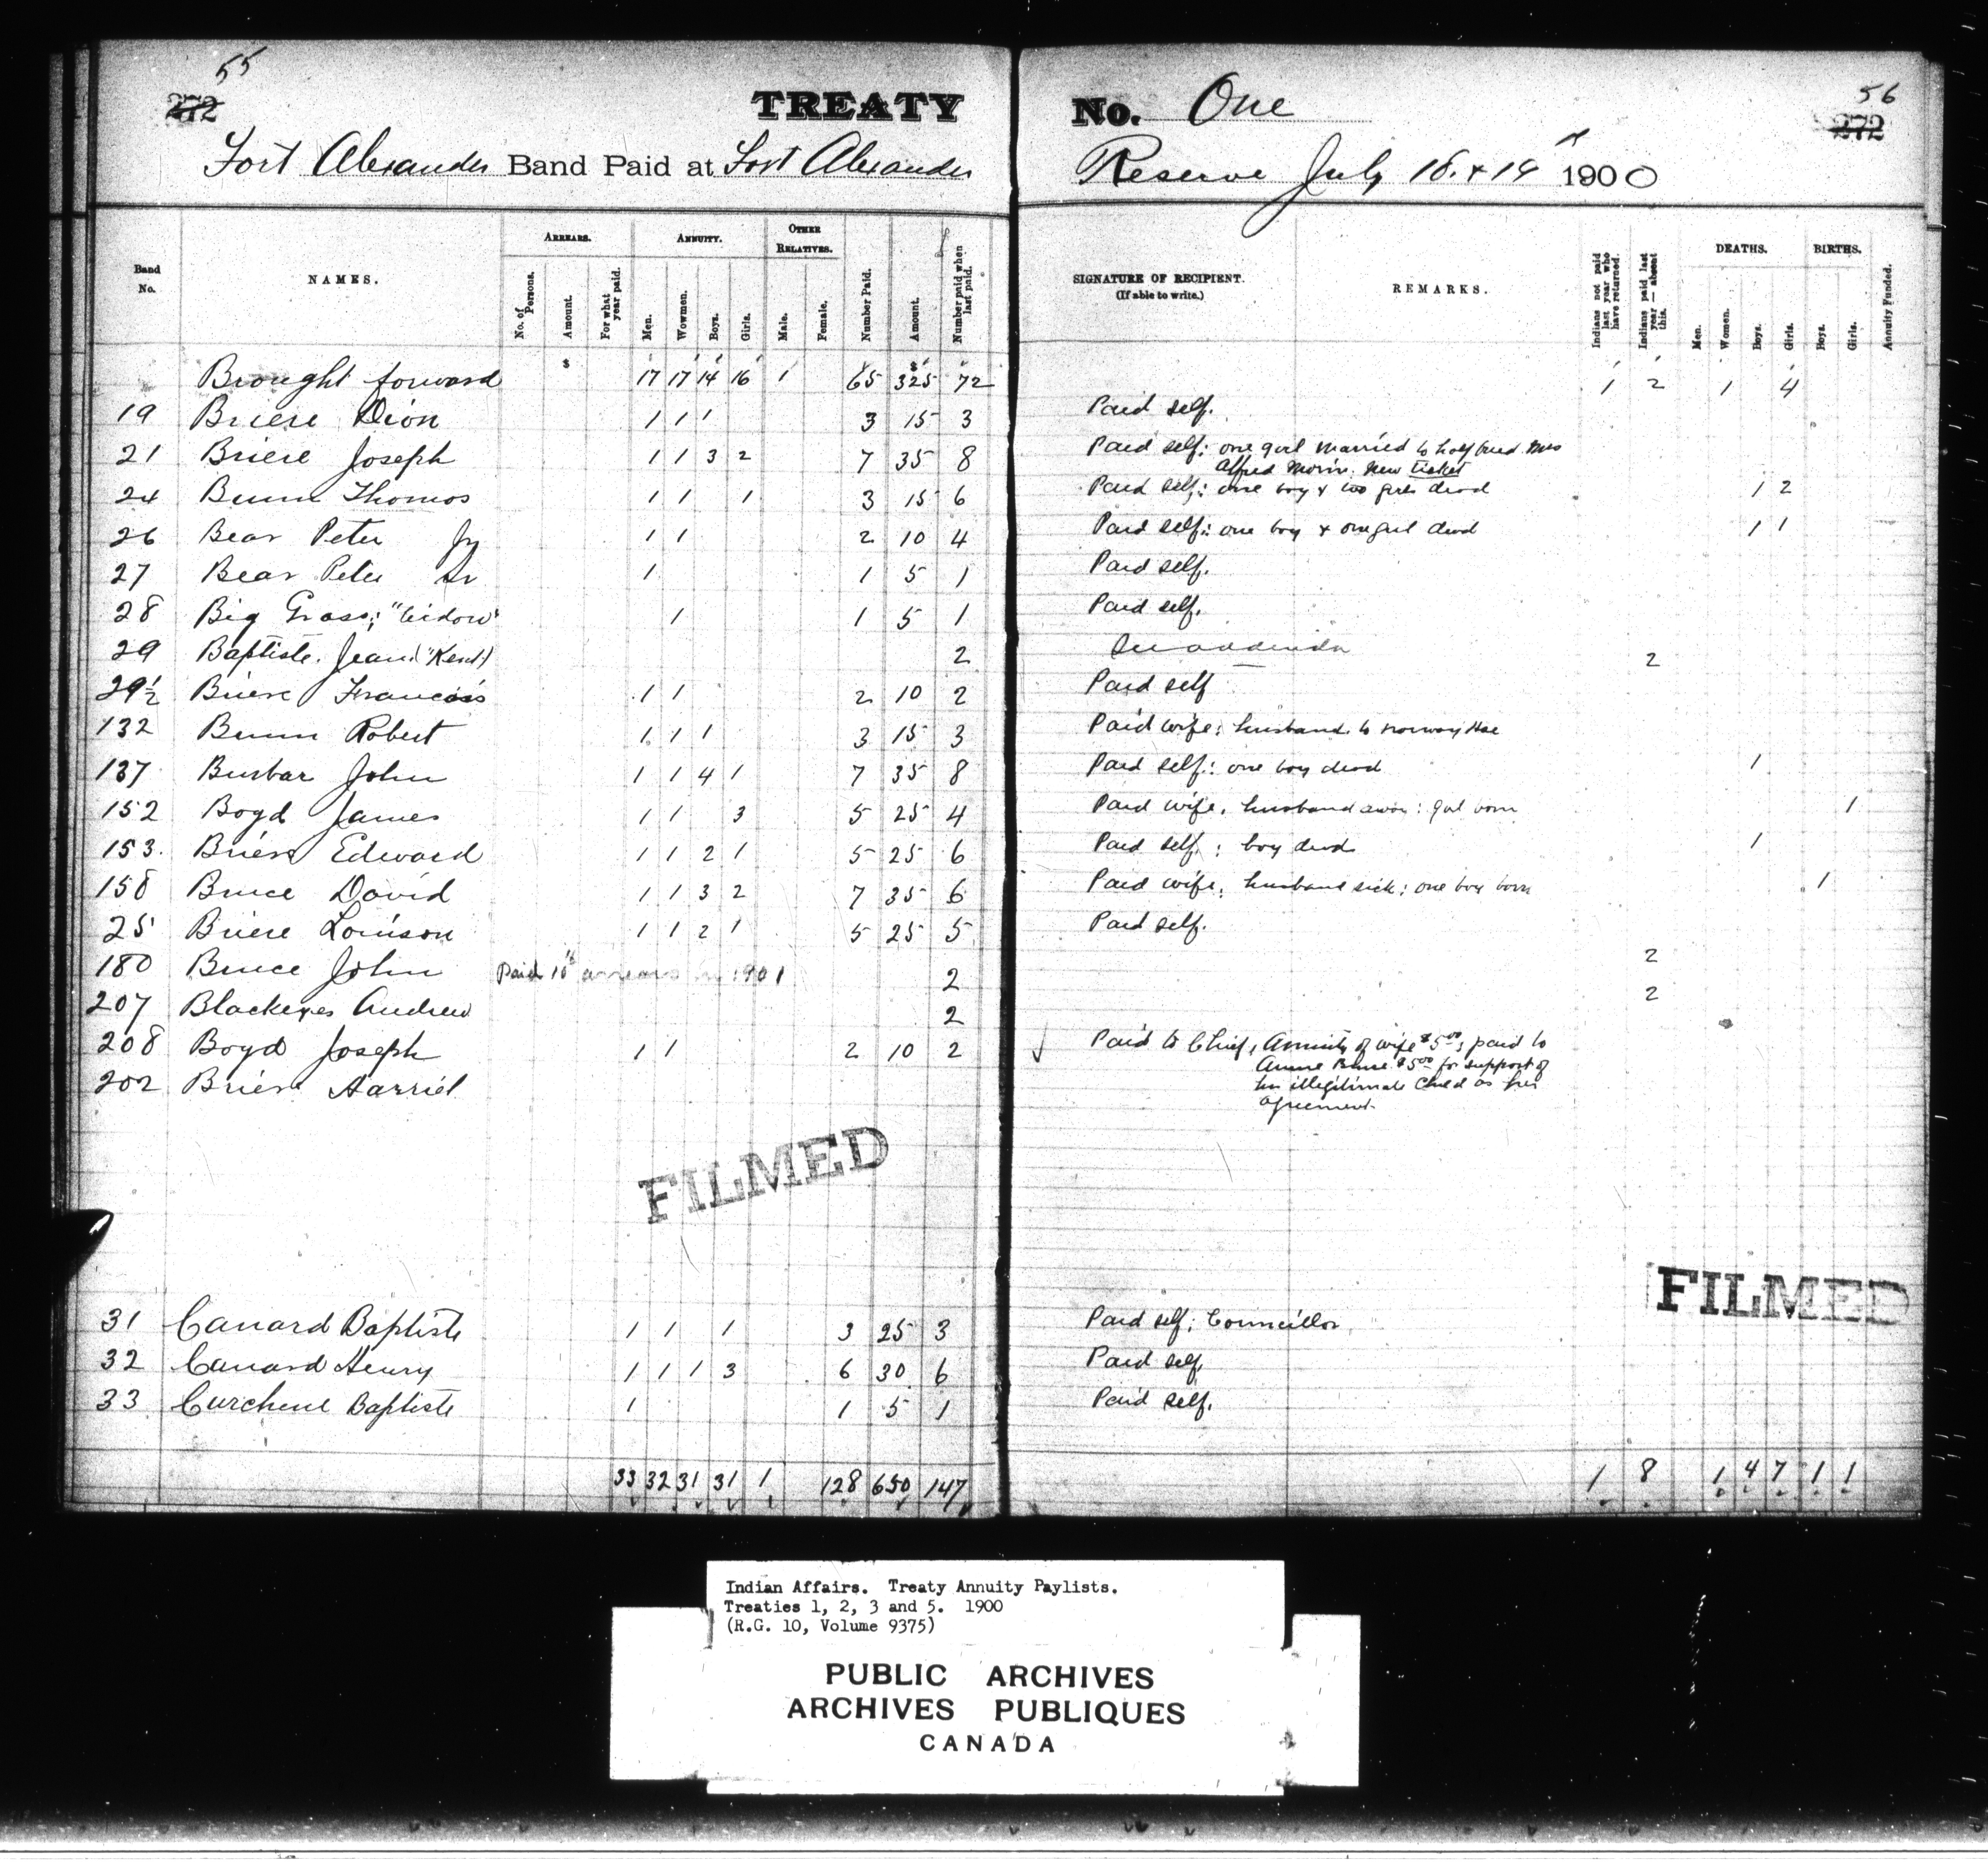 55
272
TREATY
No. One
56
272
Fort Alexander Band Paid at Fort Alexander
Reserve July 18 & 19 1900
Band No.
NAMES.
ARREARS.
No. of Persons.
Amount.
For what year paid.
ANNUITY.
Men.
Wowmen.
Boys.
Girls.
OTHER RELATIVES.
Male.
Female.
Number Paid.
Amount.
Number paid when last paid.
SIGNATURE OF RECIPIENT.
(If able to write.)
REMARKS.
Indians not paid last year who have returned.
Indians paid last year — absent this.
DEATHS.
Men.
Women.
Boys.
Girls.
BIRTHS.
Boys.
Girls.
Annuity Funded.
Brought forward $ 17 17 14 16 1 65 $325 72 1 2 1 4
19 Briere Dion 1 1 1 3 15 3 Paid self.
21 Briere Joseph 1 1 3 2 7 35 8 Paid self: one girl married to half breed Mrs
Alfred Morin. New ticket
24 Bunn Thomas 1 1 1 3 15 6 Paid self: one boy & two girls dead 1 2
26 Bear Peter Jr 1 1 2 10 4 Paid self: one boy & one girl dead 1 1
27 Bear Peter Sr 1 1 5 1 Paid self.
28 Big Grass; "Widow" 1 1 5 1 Paid self.
29 Baptiste Jean (Kent) 2 See addenda 2
29½ Briere Francois 1 1 2 10 2 Paid self
132 Bunn Robert 1 1 1 3 15 3 Paid wife; husband to Norway Hse
137 Burbar John 1 1 4 1 7 35 8 Paid self: one boy dead 1
152 Boyd James 1 1 3 5 25 4 Paid wife, husband away: girl born 1
153. Briere Edward 1 1 2 1 5 25 6 Paid self: boy dead 1
158 Bruce David 1 1 3 2 7 35 6 Paid wife, husband sick: one boy born 1
25 Briere Louison 1 1 2 1 5 25 5 Paid self.
180 Bruce John Paid 10$ arrears in 1901 2 2
207 Blackeyes Andrew 2 2
208 Boyd Joseph 1 1 2 10 2 Paid to Chief, Annuity of wife $5.00; paid to
Bruce $5.00 for support of
202 Briere Harriet illegitimate child as per
agreement.
FILMED
FILMED
31 Canard Baptiste 1 1 1 3 25 3 Paid self; Councillor
32 Canard Henry 1 1 1 3 6 30 6 Paid self,
33 Curchene Baptiste 1 1 5 1 Paid self.
33 32 31 31 1 128 650 147 1 8 1 4 7 1 1
Indian Affairs. Treaty Annuity Paylists.
Treaties 1, 2, 3 and 5. 1900
(R.G. 10, Volume 9375)
PUBLIC ARCHIVES
ARCHIVES PUBLIQUES
CANADA